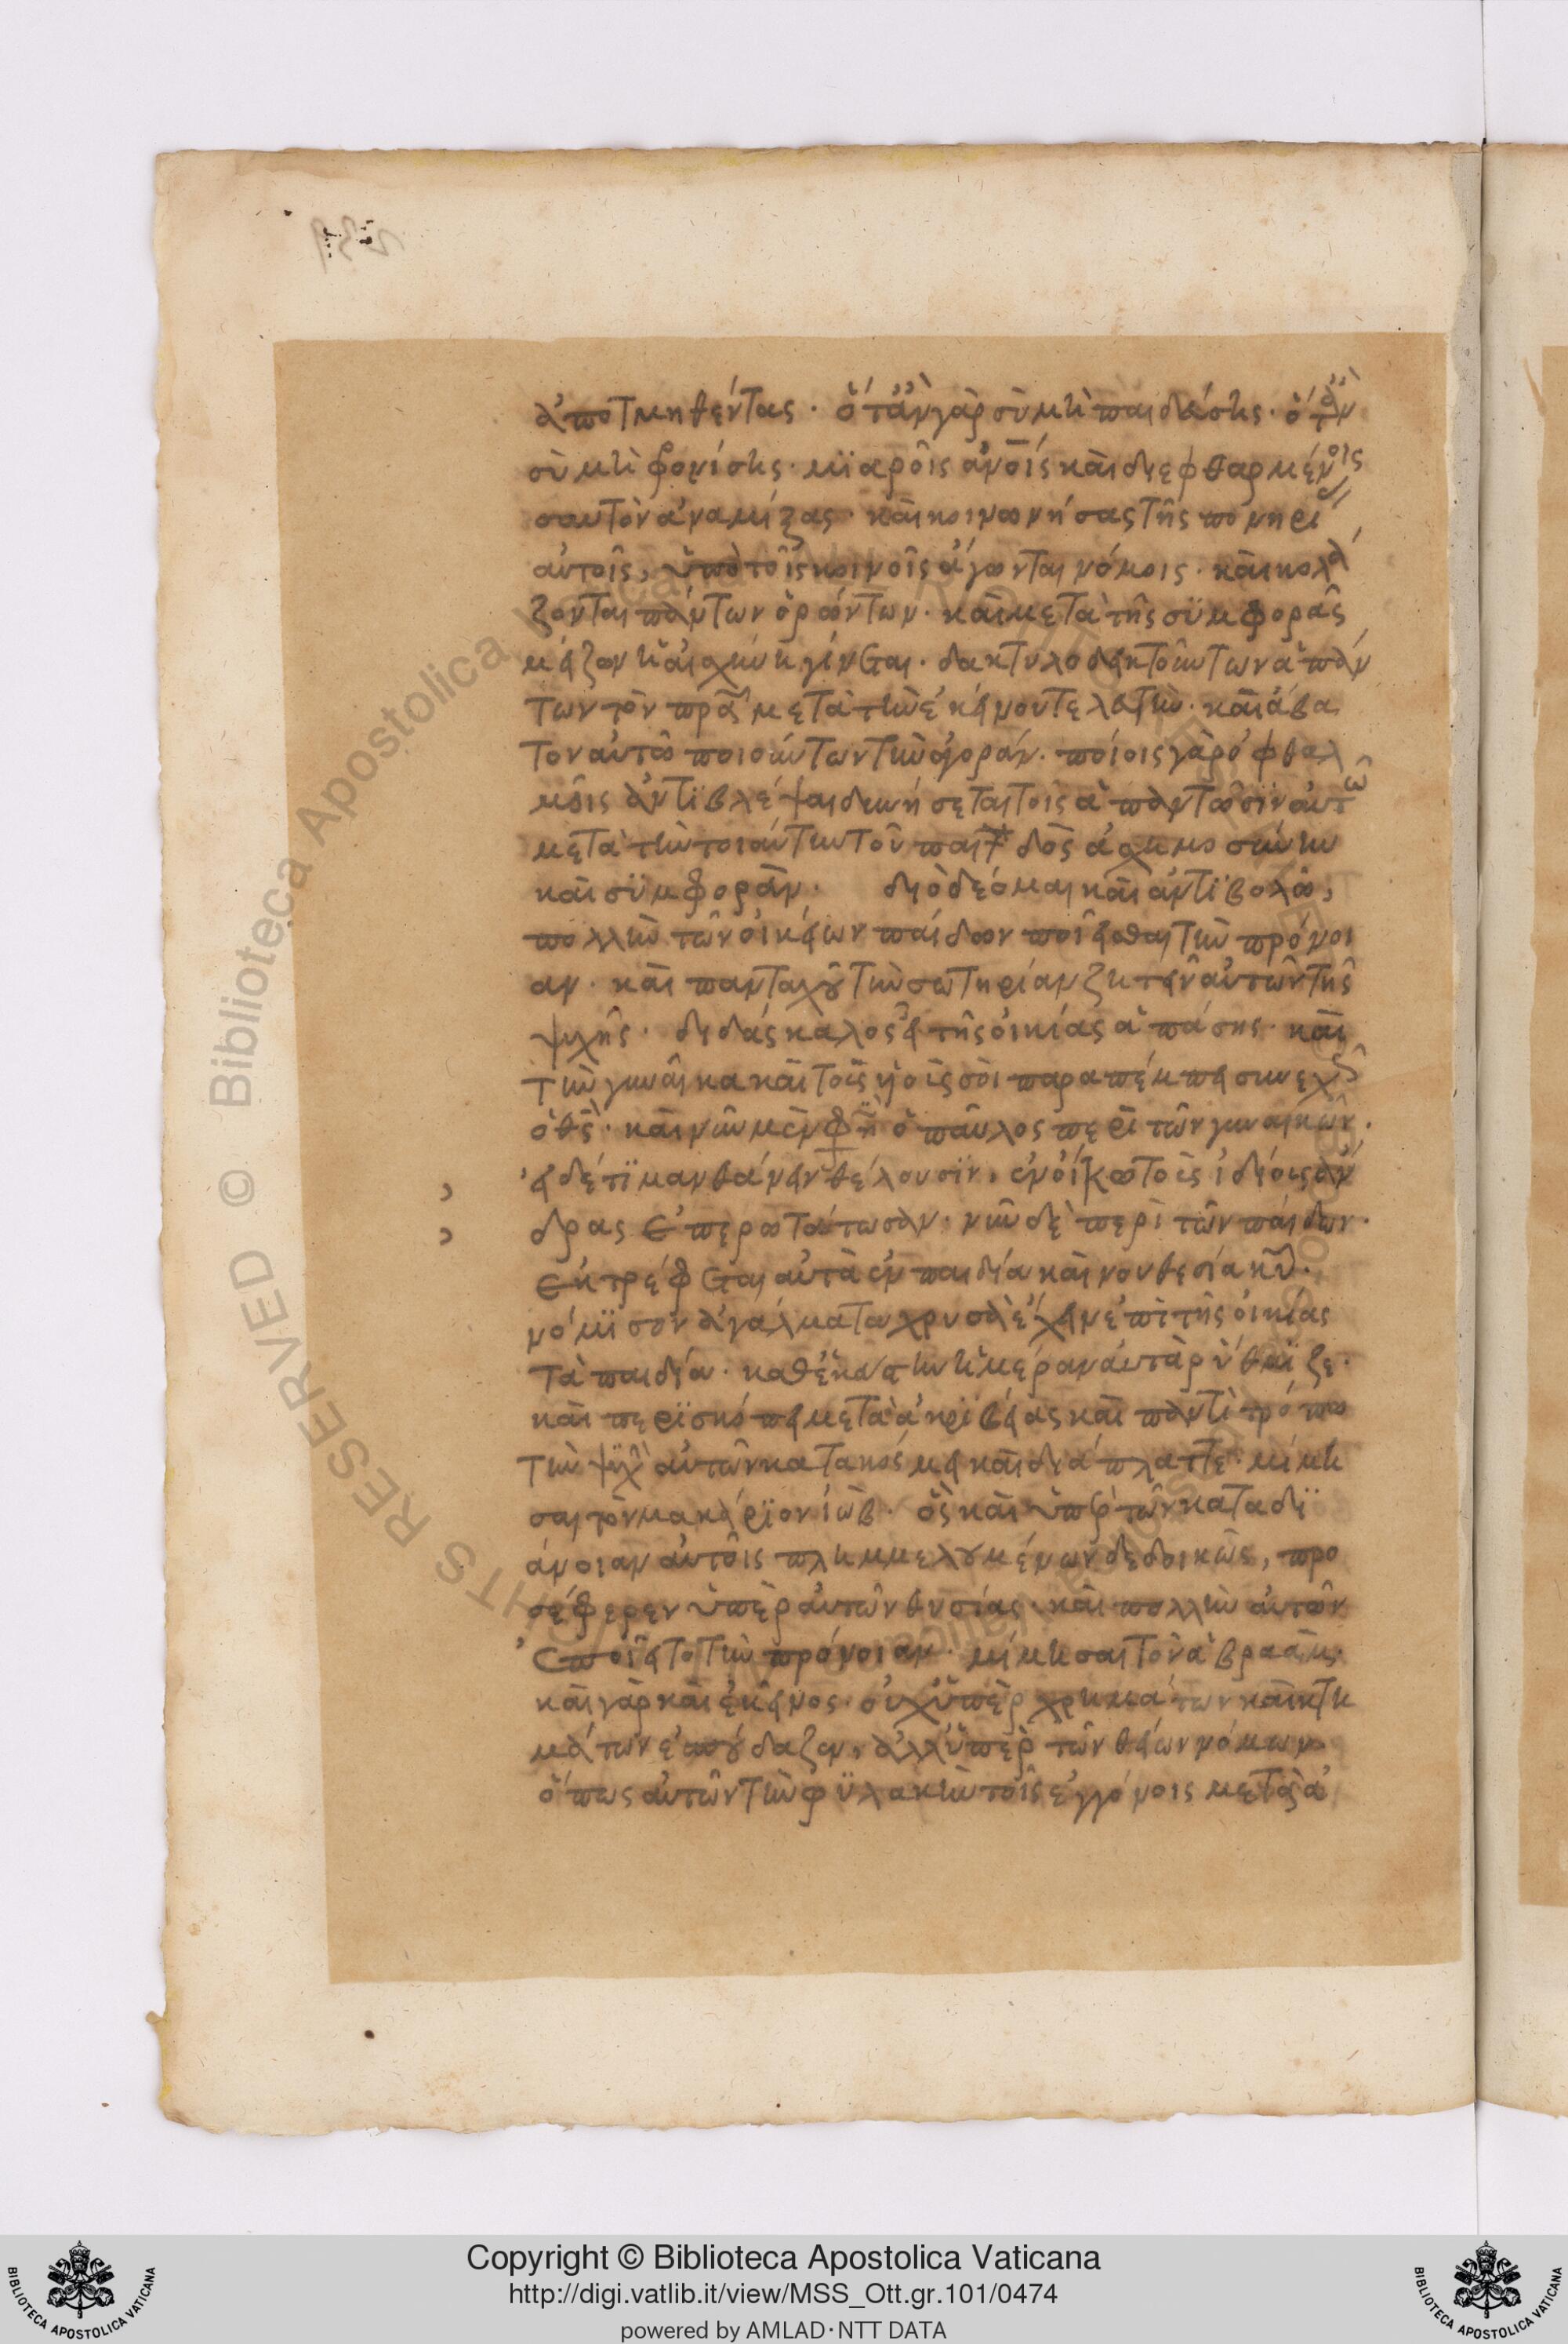 ἀποτμηθέντας· ὅταν γὰρ σὺ μὴ παιδεύσης· ὅταν
σὺ μὴ σωφρονίσης· μιαροῖς ἀνοις καὶ διεφθαρμένοις
σαυτὸν ἀναμίξας· καὶ κοινωνήσας τῆς πονηρί
αὐτοῖς, ὑπὸ τοῖς κοινοῖς ἄγονται νόμοις· καὶ κολά
ζονται πάντων ὁρώντων· καὶ μετὰ τῆς συμφορᾶς
μείζων ἡ αἰσχύνη γίνεται· δακτυλοδεικτούντων ἁπάν
των τὸν πρα μετὰ τὴν ἐκείνου τελευτήν· καὶ ἄβα
τον αὐτῶ ποιούντων τὴν ἀγοράν· ποίοις γὰρ ὀφθαλ
μοῖς ἀντιβλέψαι δυνήσεται τοῖς ἁπαντῶσιν αὐτῶ
μετὰ τὴν τοιαύτην τοῦ παιδὸς ἀσχημοσύνην
καὶ συμφοράν· διὸ δέομαι καὶ ἀντιβολῶ,
πολλὴν τῶν οἰκείων παίδων ποιεῖσθαι τὴν πρόνοι
αν· καὶ πανταχοῦ τὴν σωτηρίαν ζητεῖν αὐτῶν τῆς
ψυχῆς· διδάσκαλος εἶ τῆς οἰκίας ἁπάσης· καὶ
τὴν γυναῖκα καὶ τοὺς υἱούς σοι παραπέμπει συνεχῶς
ὁ θς· καὶ νῦν μὲν φησὶν ὁ παῦλος περὶ τῶν γυναικῶν·
εἰ δέ τι μανθάνειν θέλουσιν, ἐν οἴκω τοὺς ἰδίους ἄν
δρας ἐπερωτάτωσαν· νῦν δὲ περὶ τῶν παίδων·
ἐκτρέφεται αὐτὰ ἐν παιδεία καὶ νουθεσία κυ·
νόμισον ἀγάλματα χρυσᾶ ἔχειν ἐπὶ τῆς οἰκίας
τὰ παιδία· καθ' ἑκάστην ἡμέραν αὐτὰ ῥύθμιζε·
καὶ περισκόπει μετὰ ἀκριβείας καὶ παντὶ τρόπω
τὴν ψυχὴν αὐτῶν κατακόσμει καὶ διάπλαττε· μίμη
σαι τὸν μακάριον ἰώβ· ὃς καὶ ὑπὲρ τῶν κατὰ δι
άνοιαν αὐτοῖς πλημμελουμένων δεδοικὼς, προ
σέφερεν ὑπὲρ αὐτῶν θυσίας· καὶ πολλὴν αὐτῶν
ἐποιεῖτο τὴν πρόνοιαν· μίμησαι τὸν ἀβραάμ·
καὶ γὰρ καὶ ἐκεῖνος· οὐχ ὑπὲρ χρημάτων καὶ κτη
μάτων ἐσπούδαζεν, ἀλλ' ὑπὲρ τῶν θείων νόμων
ὅπως αὐτῶν τὴν φυλακὴν τοῖς ἐγγόνοις μετὰ ἀ
Copyright © Biblioteca Apostolica Vaticana
http://digi.vatlib.it/view/MSS_Ott.gr.101/0474
powered by AMLAD·NTT DATA